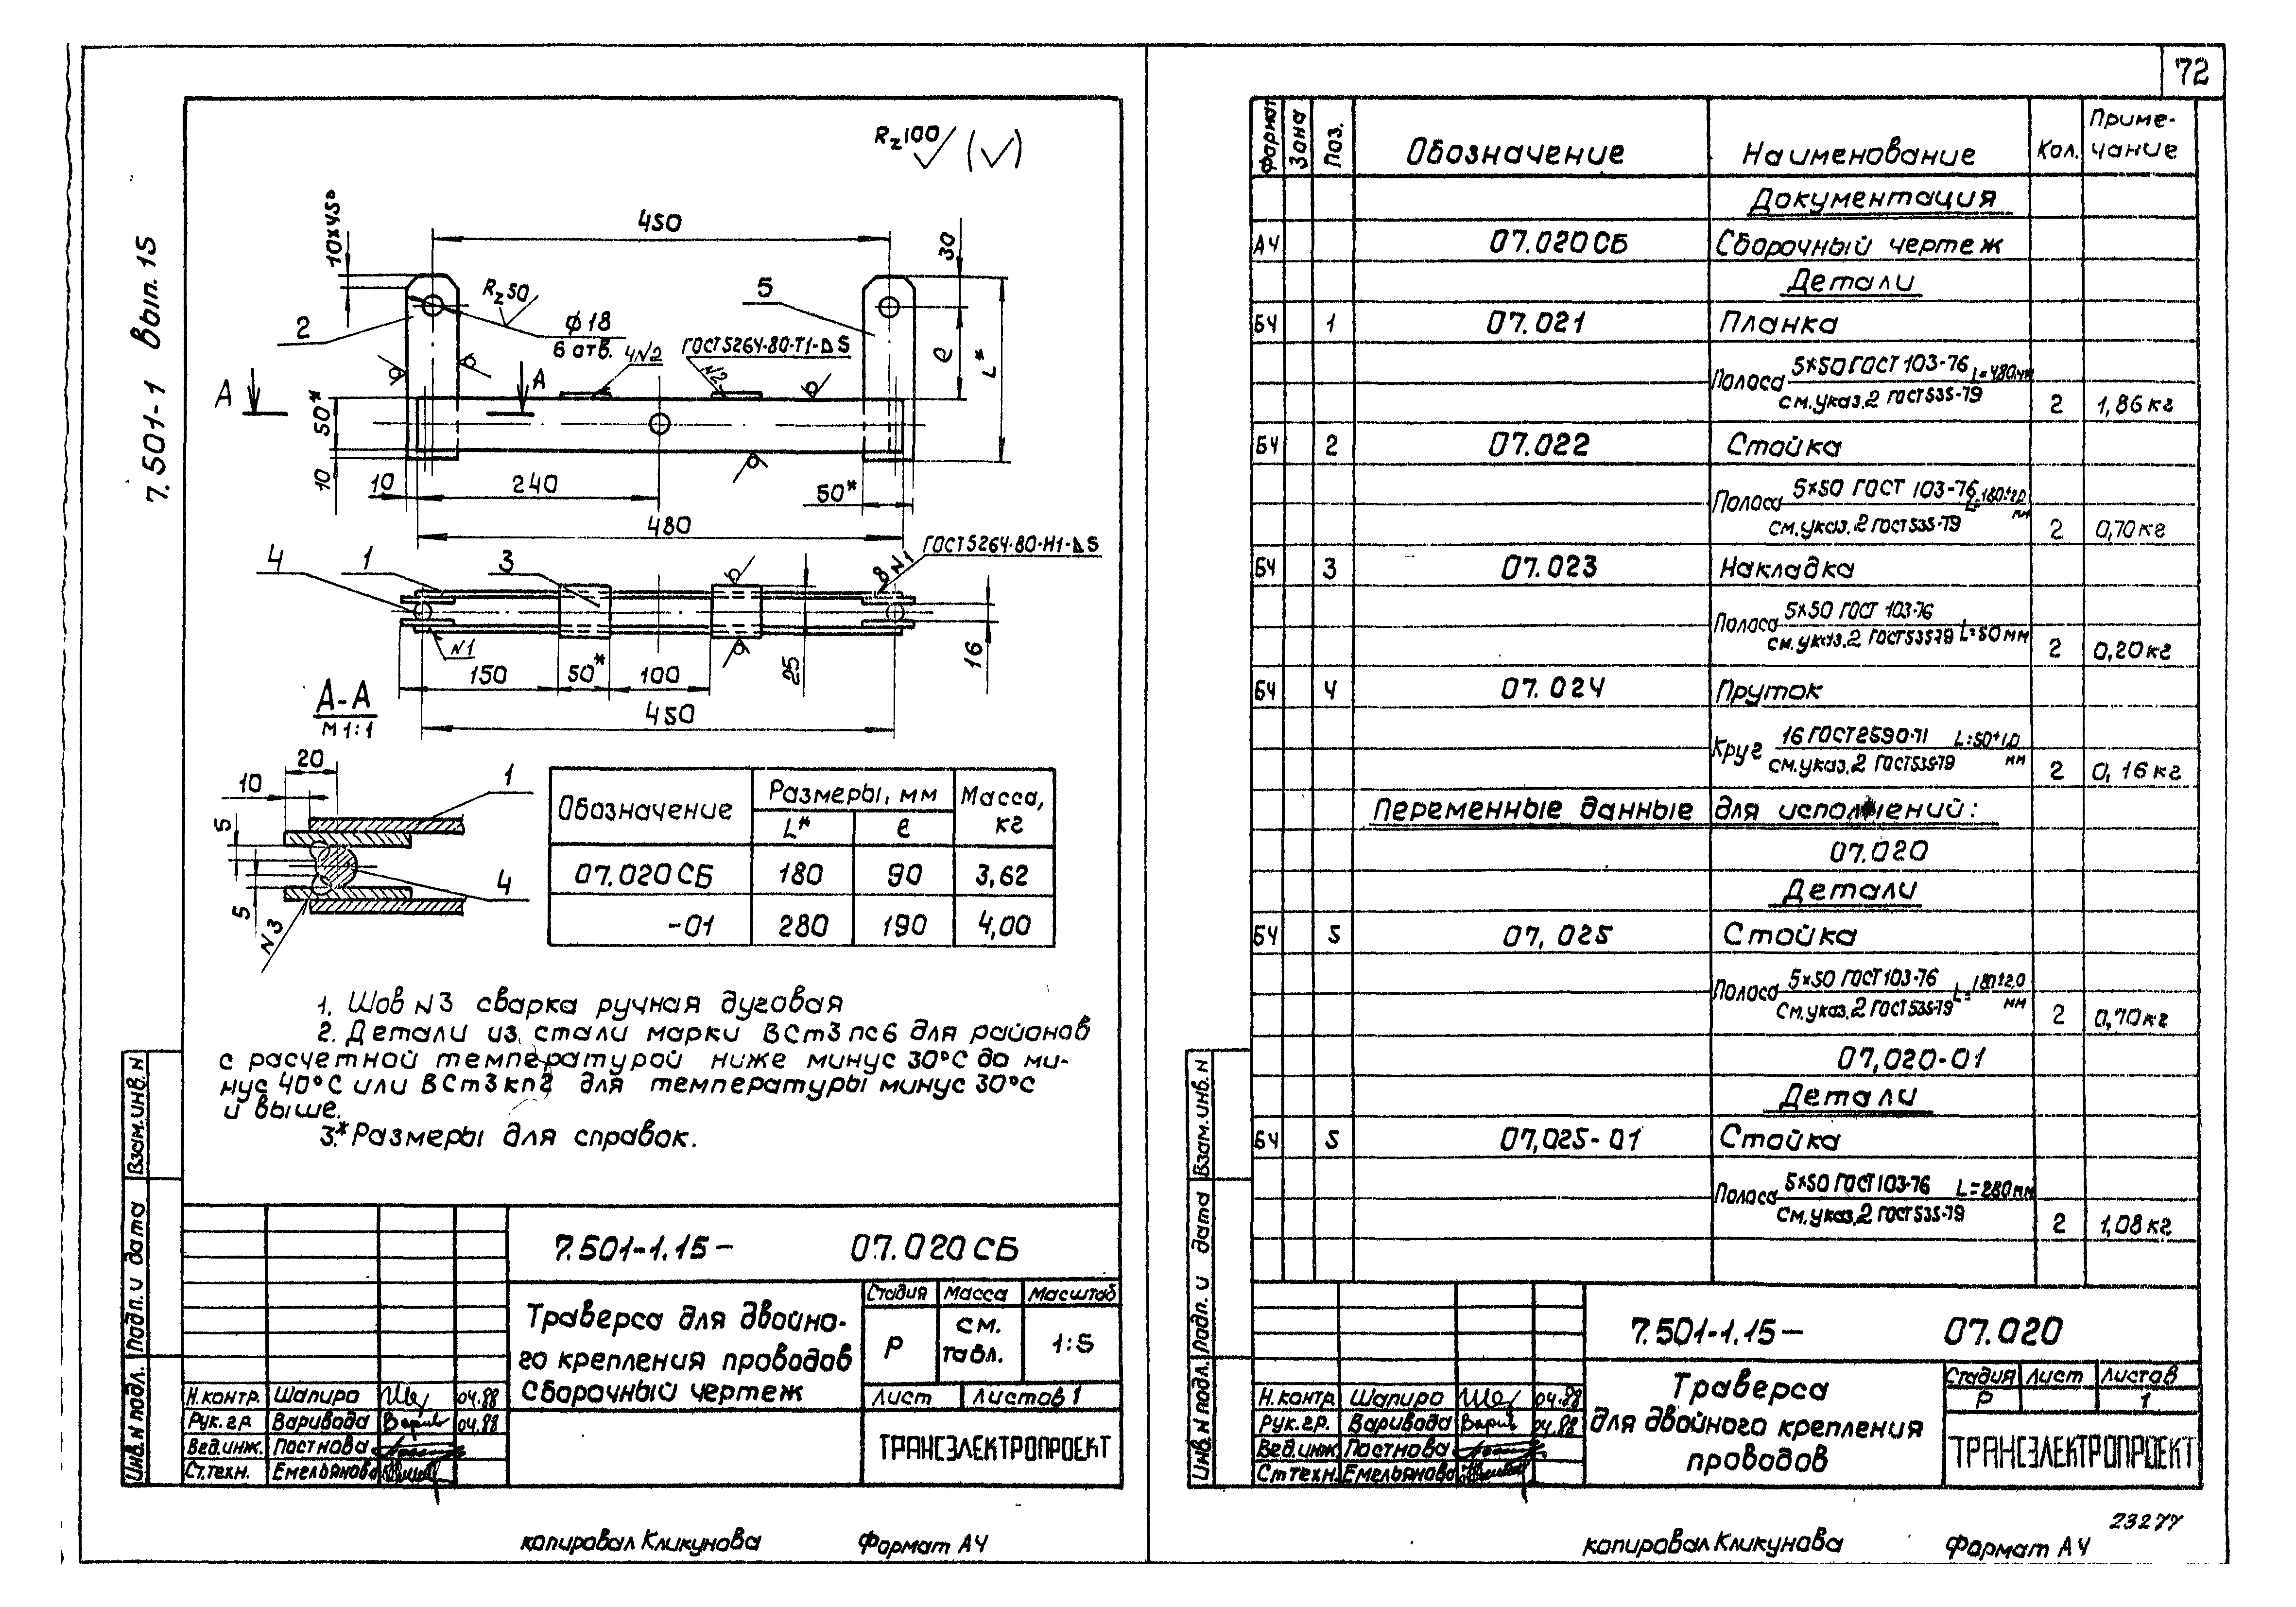 72
7.501-1 Вып. 15
Rz100 (√)
10×45°
450
30
Rz50
5
2
⌀18
6 отв.
4№2
ГОСТ 5264-80-Т1-⊿5
№2
ℓ
L*
А
А
50*
10
10
240
50*
480
ГОСТ 5264-80-Н1-⊿5
8№1
4
1
3
№1
150
50*
100
25
16
450
А-А
М 1:1
20
10
1
5
5
4
№3
Обозначение
Размеры, мм
Масса, кг
L*
ℓ
07.020 СБ 180 90 3,62
-01 280 190 4,00
1. Шов №3 сварка ручная дуговая
2. Детали из стали марки ВСт3пс6 для районов
с расчетной температурой ниже минус 30°С до ми-
нус 40°С или ВСт3кп2 для температуры минус 30°С
и выше.
3.* Размеры для справок.
Взам.инв.N
Подп. и дата
Инв.N подл.
7.501-1.15- 07.020 СБ
Траверса для двойно-
го крепления проводов
Сборочный чертеж
Стадия Масса Масштаб
Р см. табл. 1:5
Лист Листов 1
ТРАНСЭЛЕКТРОПРОЕКТ
Н.контр. Шапиро 04.88
Рук.гр. Варивода 04.88
Вед.инж. Постнова
Ст.техн. Емельянова
копировал Кликунова Формат А4
Формат Зона Поз. Обозначение Наименование Кол. Приме-
чание
Документация
А4 07.020 СБ Сборочный чертеж
Детали
БЧ 1 07.021 Планка
Полоса 5×50 ГОСТ 103-76 L=480мм
см.указ.2 ГОСТ 535-79 2 1,86 кг
БЧ 2 07.022 Стойка
Полоса 5×50 ГОСТ 103-76 L=180±2,0 мм
см.указ.2 ГОСТ 535-79 2 0,70 кг
БЧ 3 07.023 Накладка
Полоса 5×50 ГОСТ 103-76
см.указ.2 ГОСТ 535-79 L=50 мм 2 0,20 кг
БЧ 4 07.024 Пруток
Круг 16 ГОСТ 2590-71 L=50±1,0 мм
см.указ.2 ГОСТ 535-79 2 0,16 кг
Переменные данные для исполнений:
07.020
Детали
БЧ 5 07,025 Стойка
Полоса 5×50 ГОСТ 103-76 L=180±2,0 мм
см.указ.2 ГОСТ 535-79 2 0,70 кг
07,020-01
Детали
БЧ 5 07,025-01 Стойка
Полоса 5×50 ГОСТ 103-76 L=280мм
см.указ.2 ГОСТ 535-79 2 1,08 кг
Взам.инв.N
Подп. и дата
Инв.N подл.
7.501-1.15- 07.020
Траверса
для двойного крепления
проводов
Стадия Лист Листов
Р 1
ТРАНСЭЛЕКТРОПРОЕКТ
Н.контр. Шапиро 04.88
Рук.гр. Варивода 04.88
Вед.инж. Постнова
Ст.техн. Емельянова
23277
копировал Кликунова Формат А4